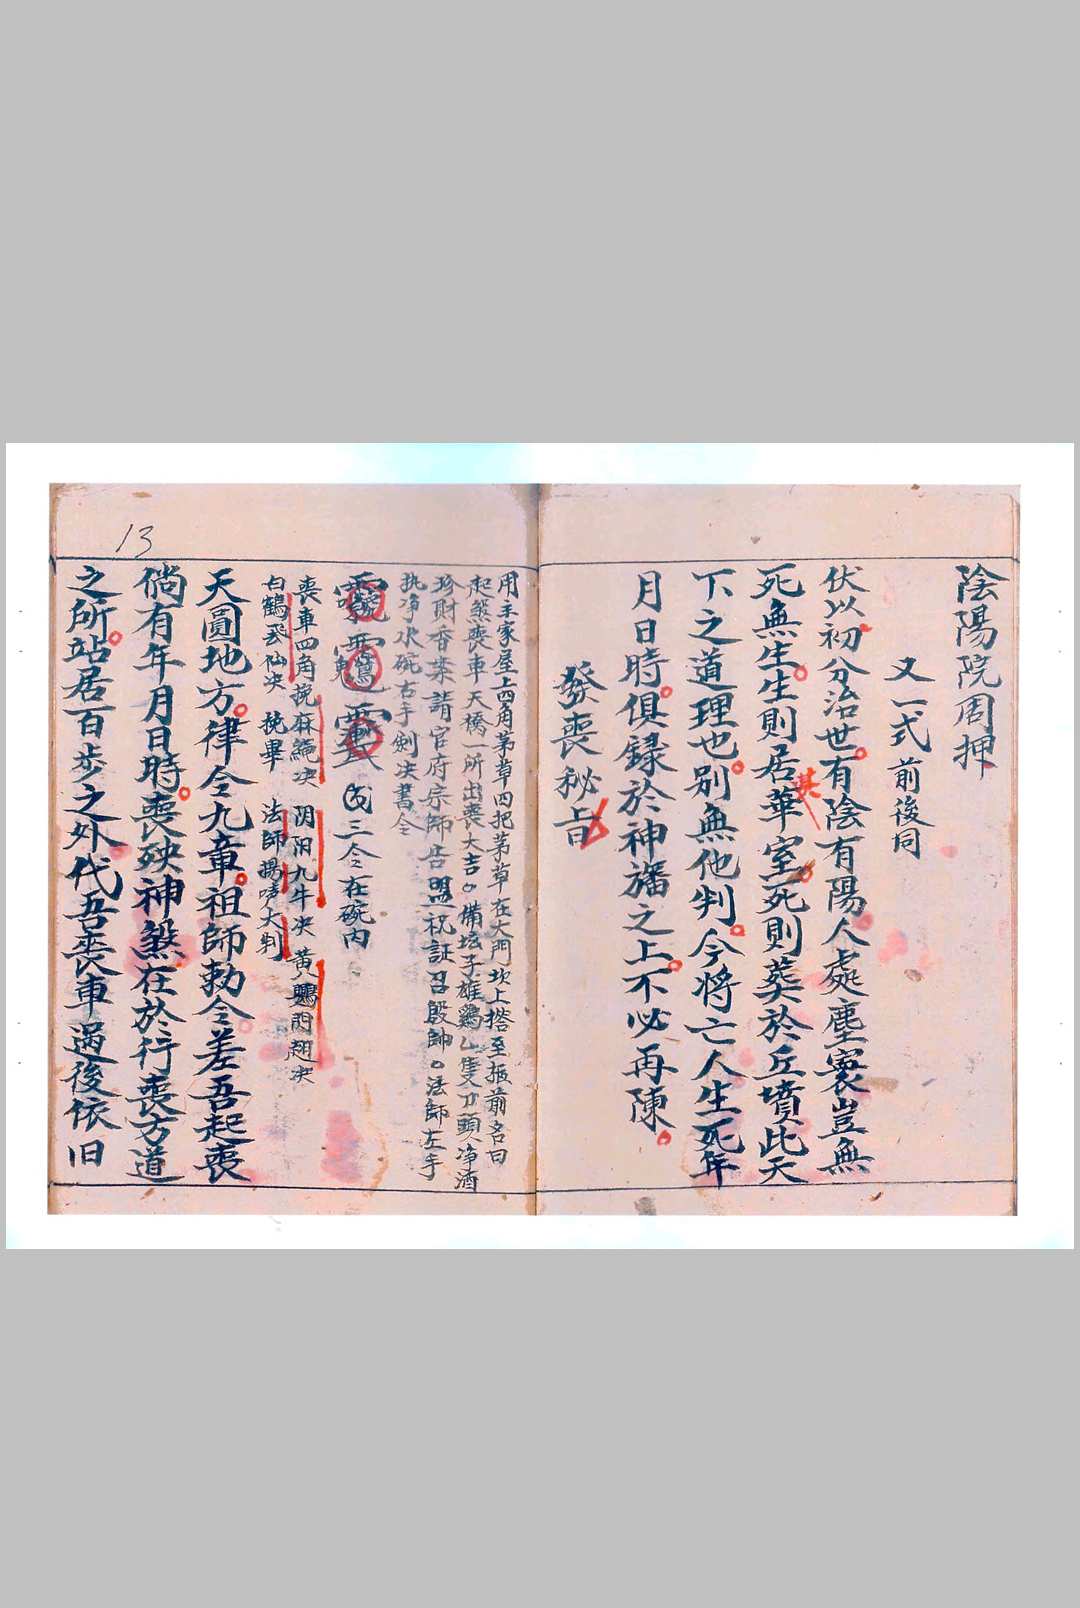 陰陽院周押
又一式 前後同
伏以初分治世有陰有陽人處塵寰豈無
死無生生則居華室死則葬於丘墳此天
其
下之道理也別無他判今將亡人生死年
月日時俱録於神旛之上不必再陳
發喪秘旨
用主家屋上四角茅草四把茅草在大門坎上搭至柩前名曰
起煞喪車天橋一所出喪大吉。備坛子雄鷄一隻刀頭净酒
珍財香案請官府宗師告盟祝証召殷帥。法師左手
执净水碗右手剣决書令
三令在碗内
喪車四角挽麻繩决 阴阳九牛决 黄 閃翅决
白鶴飛仙决 挽畢 法師揚 大判
天圓地方律令九章祖師勅令差吾起喪
倘有年月日時喪殃神煞在於行喪方道
之所站居一百步之外代吾喪車過後依旧
13